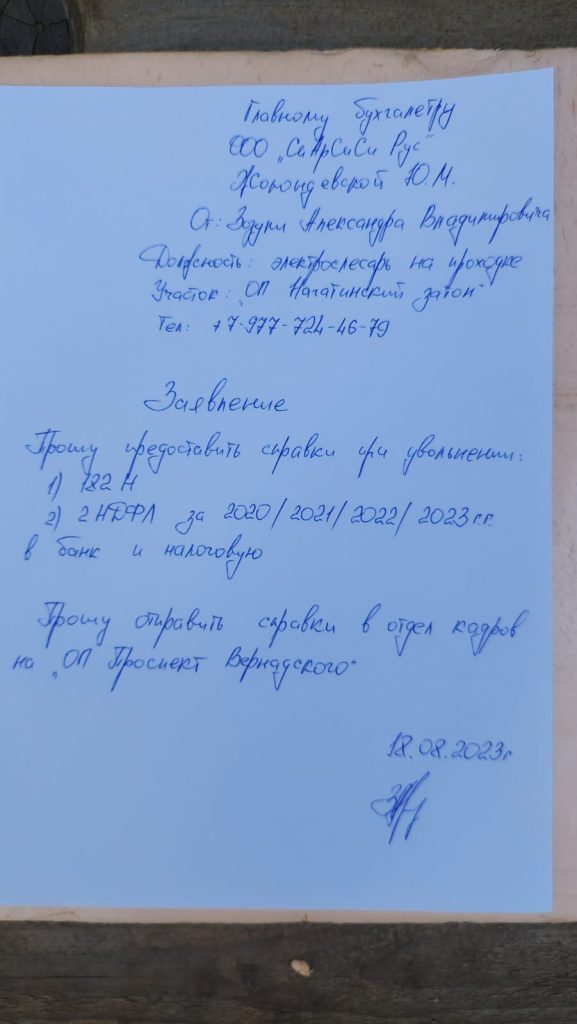 Главному бухгалтеру
ООО „СиАрСиСи Рус"
Ю.М.
От: Зозули Александра Владимировича
Должность: электрослесарь на проходке
Участок: „ОП Нагатинский затон"
Тел: +7-977-724-46-79
Заявление
Прошу предоставить справки при увольнении:
1) 182 Н
2) 2 НДФЛ за 2020/2021/2022/2023 г.г.
в банк и налоговую
Прошу отправить справки в отдел кадров
на „ОП Проспект Вернадского"
18.08.2023г